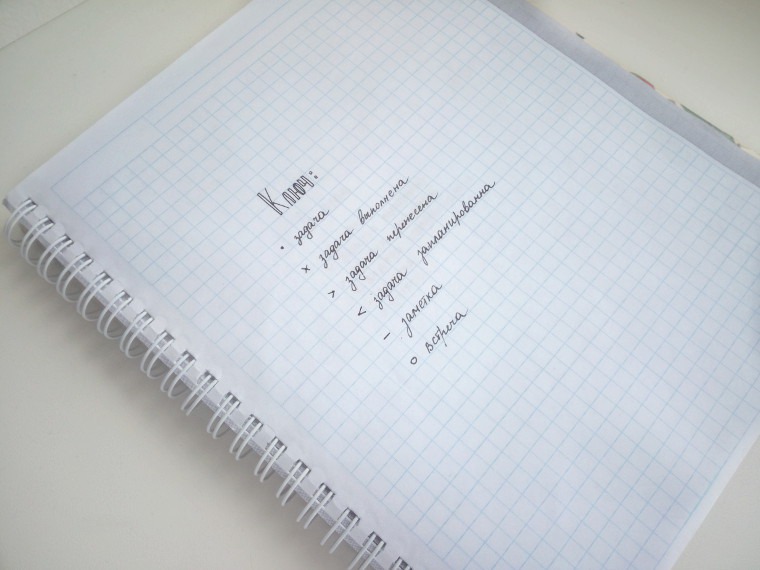 Ключ:
• задача
x задача выполнена
> задача перенесена
< задача запланированна
– заметка
o встреча